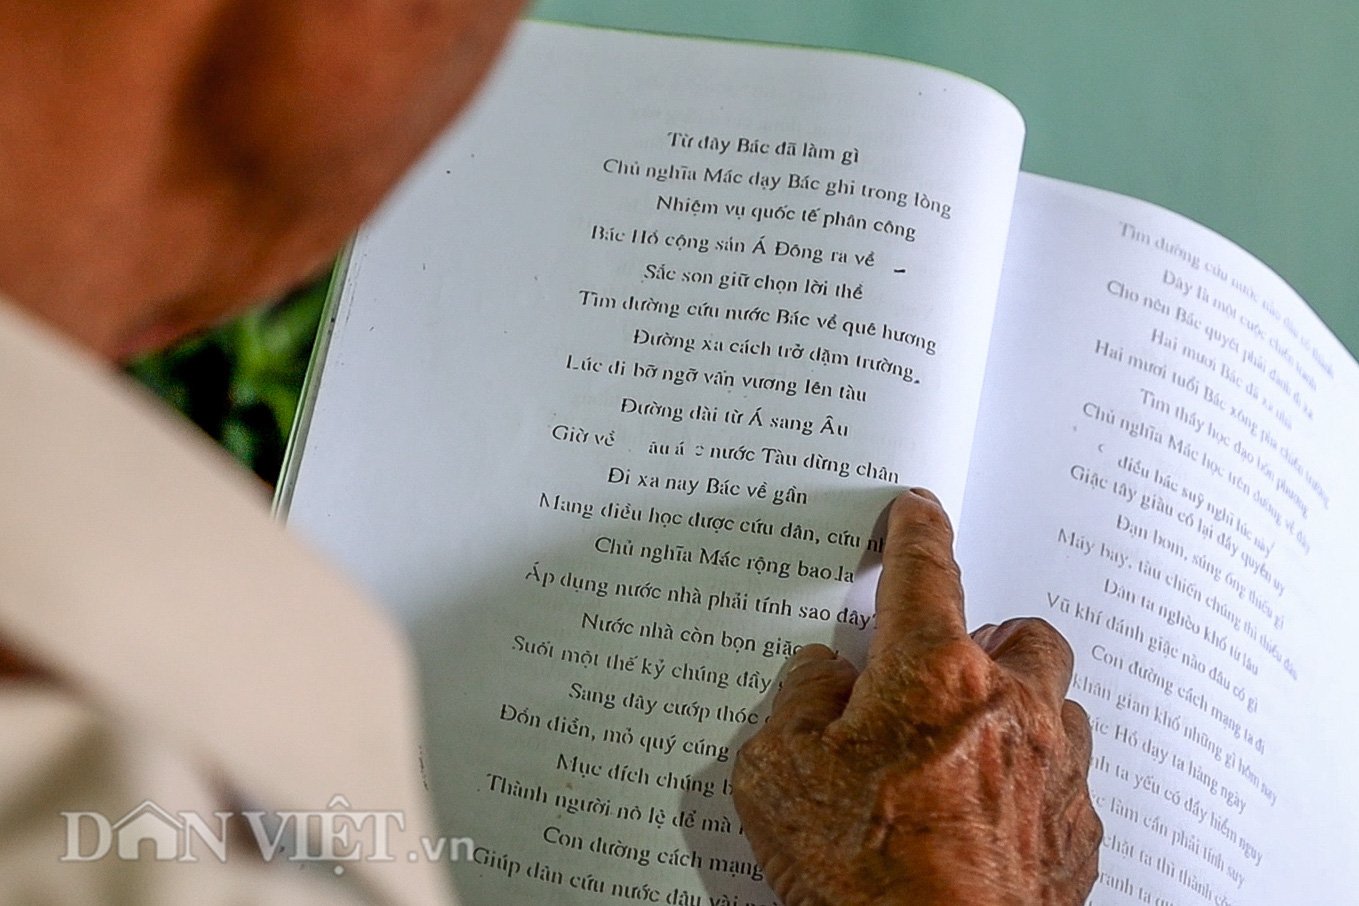 Từ đây Bác đã làm gì
Chủ nghĩa Mác dạy Bác ghi trong lòng
Nhiệm vụ quốc tế phân công
Bác Hồ cộng sản Á Đông ra về
Sắc son giữ chọn lời thề
Tìm đường cứu nước Bác về quê hương
Đường xa cách trở dặm trường.
Lúc đi bỡ ngỡ vấn vương lên tàu
Đường dài từ Á sang Âu
Giờ về nước Tàu dừng chân
Đi xa nay Bác về gần
Mang điều học được cứu dân, cứu
Chủ nghĩa Mác rộng bao la
Áp dụng nước nhà phải tính sao đây?
Nước nhà còn bọn giặc
Suốt một thế kỷ chúng đầy
Sang đây cướp thóc
Đồn điền, mỏ quý cúng
Mục đích chúng
Thành người nô lệ để mà
Con đường cách mạng
Giúp dân cứu nước đâu vài
Tìm đường cứu nước nào đâu có thành
Đây là một cuộc chiến tranh
Cho nên Bác quyết phải đành đi xa
Hai mươi Bác đã xa nhà
Hai mươi tuổi Bác xông pha chiến trường
Tìm thầy học đạo bốn phương
Chủ nghĩa Mác học trên đường về đây
điều bác suỹ nghĩ lúc này
Giặc tây giàu có lại đầy quyền uy
Đạn bom, súng ống thiếu gì
Máy bay, tàu chiến chúng thì thiếu đâu
Dân ta nghèo khổ từ lâu
Vũ khí đánh giặc nào đâu có gì
Con đường cách mạng ta đi
khăn gian khổ những gì hôm nay
Hồ dạy ta hàng ngày
ta yếu có đầy hiểm nguy
làm cần phải tính suy
chặt ta thì thành
DÂN VIỆT.vn